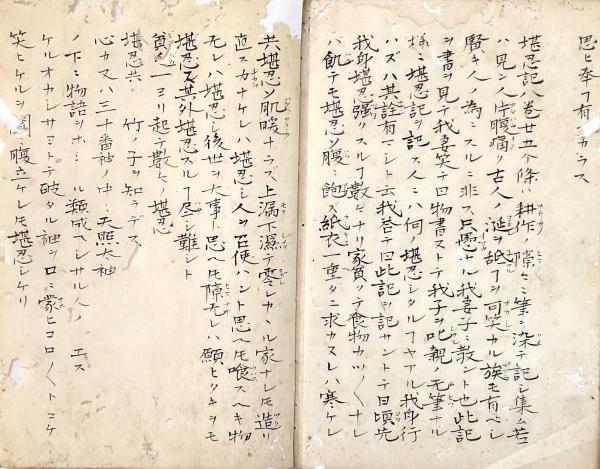 思ヒ奉ヿ有ヘカラス
堪忍記八巻廿五个條ハ耕作ノ隙ヒニ筆ニ染テ記シ集ム若
ハ見ン人片腹痛ク古人ノ涎ヲ舐ヿヲ可笑カル族モ有ヘシ
賢キ人ノ為ニスルニ非ス只愚ナル我妻子ニ教ント也此記
ヲ書ヲ見テ我妻笑テ曰物書ストテ我子ヲ叱親ノ无筆ナル
様ニ堪忍記ヲ記ス人ニハ何ノ堪忍シタルヿヤアル我身行
ハズハ其詮有マシト云我答テ曰此記ヲ記サントテ日頃先
我身堪忍強クスルヿ数ヒナリ家貧クテ食物カツ〱ナレ
ハ飢テモ堪忍ソ腹ニ飽ズ紙衣一重ダニ求カヌレハ寒ケレ
共堪忍ソ肌暖ナラズ上漏下濕テ零レカヽル家ナレ𪜈造リ
直スカナケレハ堪忍シ人ヲ召使ハント思ヘ𪜈喰スヘキ物
无レハ堪忍シ後世ヲ大事ニ思ヘ𪜈隙无レハ願ヒタキヲモ
堪忍ス其外堪忍スルヿ尽シ難シト
貧ノ一ヨリ起テ數ヒノ堪忍
堪忍共　竹ノ子ヲ知ラデス
心カスハ三十番神ノ中ニ天照大神
ノ下ニ物語ヲ
ル類成ヘシサル人ノ　エス
ケルオカシサヨトテ破タル袖ヲ口ニ蒙ヒコロ〱トコケ
笑ヒケルヲ聞腹立ケレ𪜈堪忍シケリ